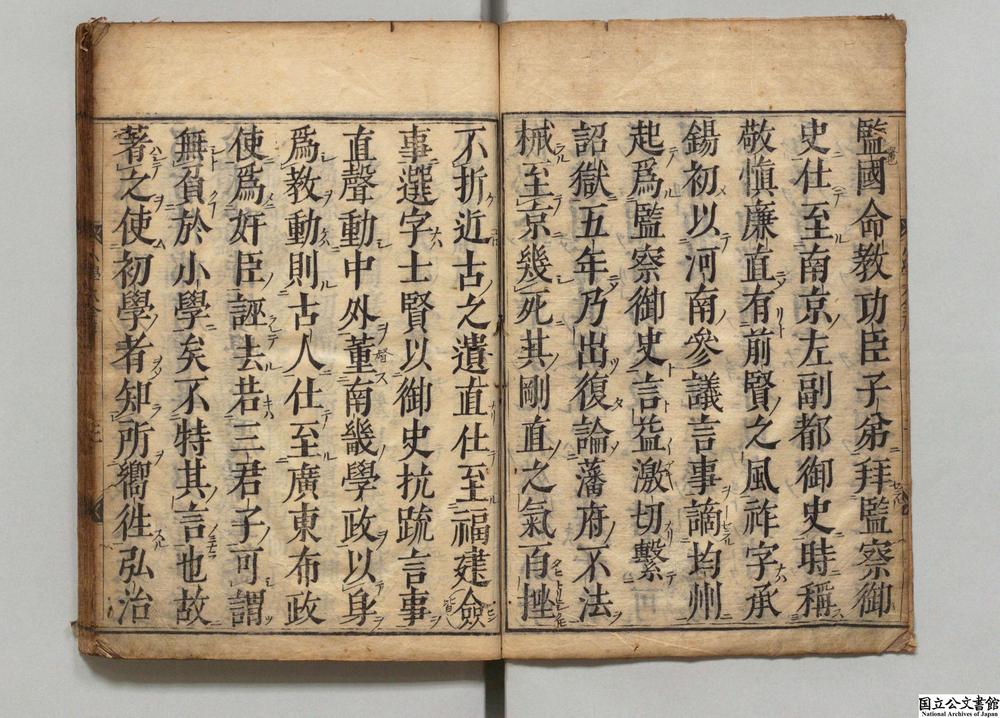 監國命教功臣子弟拜監察御
史仕至南京左副都御史時稱
敬愼廉直有前賢之風祚字承
錫初以河南參議言事謫均州
起爲監察御史言益激切繫
詔獄五年乃出復論藩府不法
械至京幾死其剛直之氣百挫
不折近古之遺直仕至福建僉
事選字士賢以御史抗疏言事
直聲動中外董南畿學政以身
爲教動則古人仕至廣東布政
使爲奸臣誣去若三君子可謂
無負於小學矣不特其言也故
著之使初學者知所嚮徃弘治
国立公文書館
National Archives of Japan